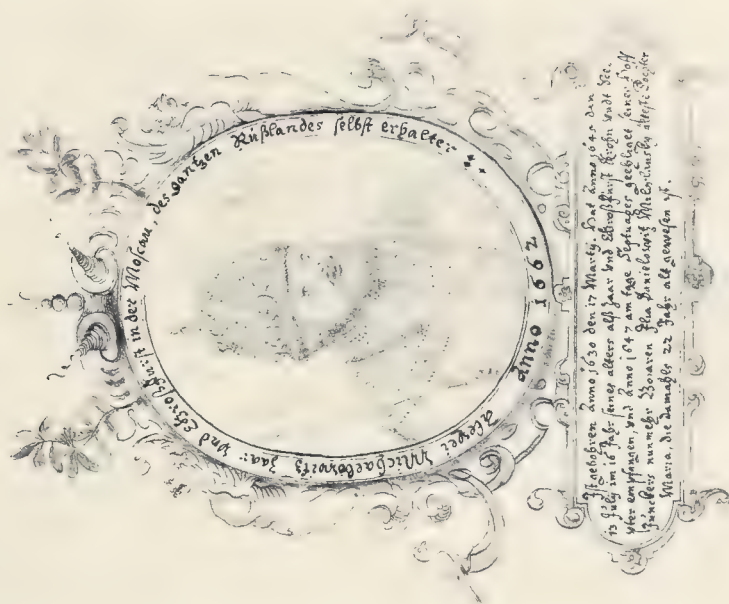 Alexei Michaelowitz Zaar: Und Großfürst in der Moscau, des gantzen Rüßlandes selbst erhalter
Anno 1662
Ist gebohren Anno 1630 den 17 Martÿ. Hat Anno 1645 den
13 Julÿ im 16 Jahr seines alters alß Zaar Und Großfürst Krohn undt Sce-
pter empfangen, und Anno 1647 am tage Septuages geehliget seines Hoff
Junckers nunmehr Bojaren Ilia Danielowitz Miloslausky älteste Dochter
Maria, die damahls 22 Jahr alt gewesen ist.